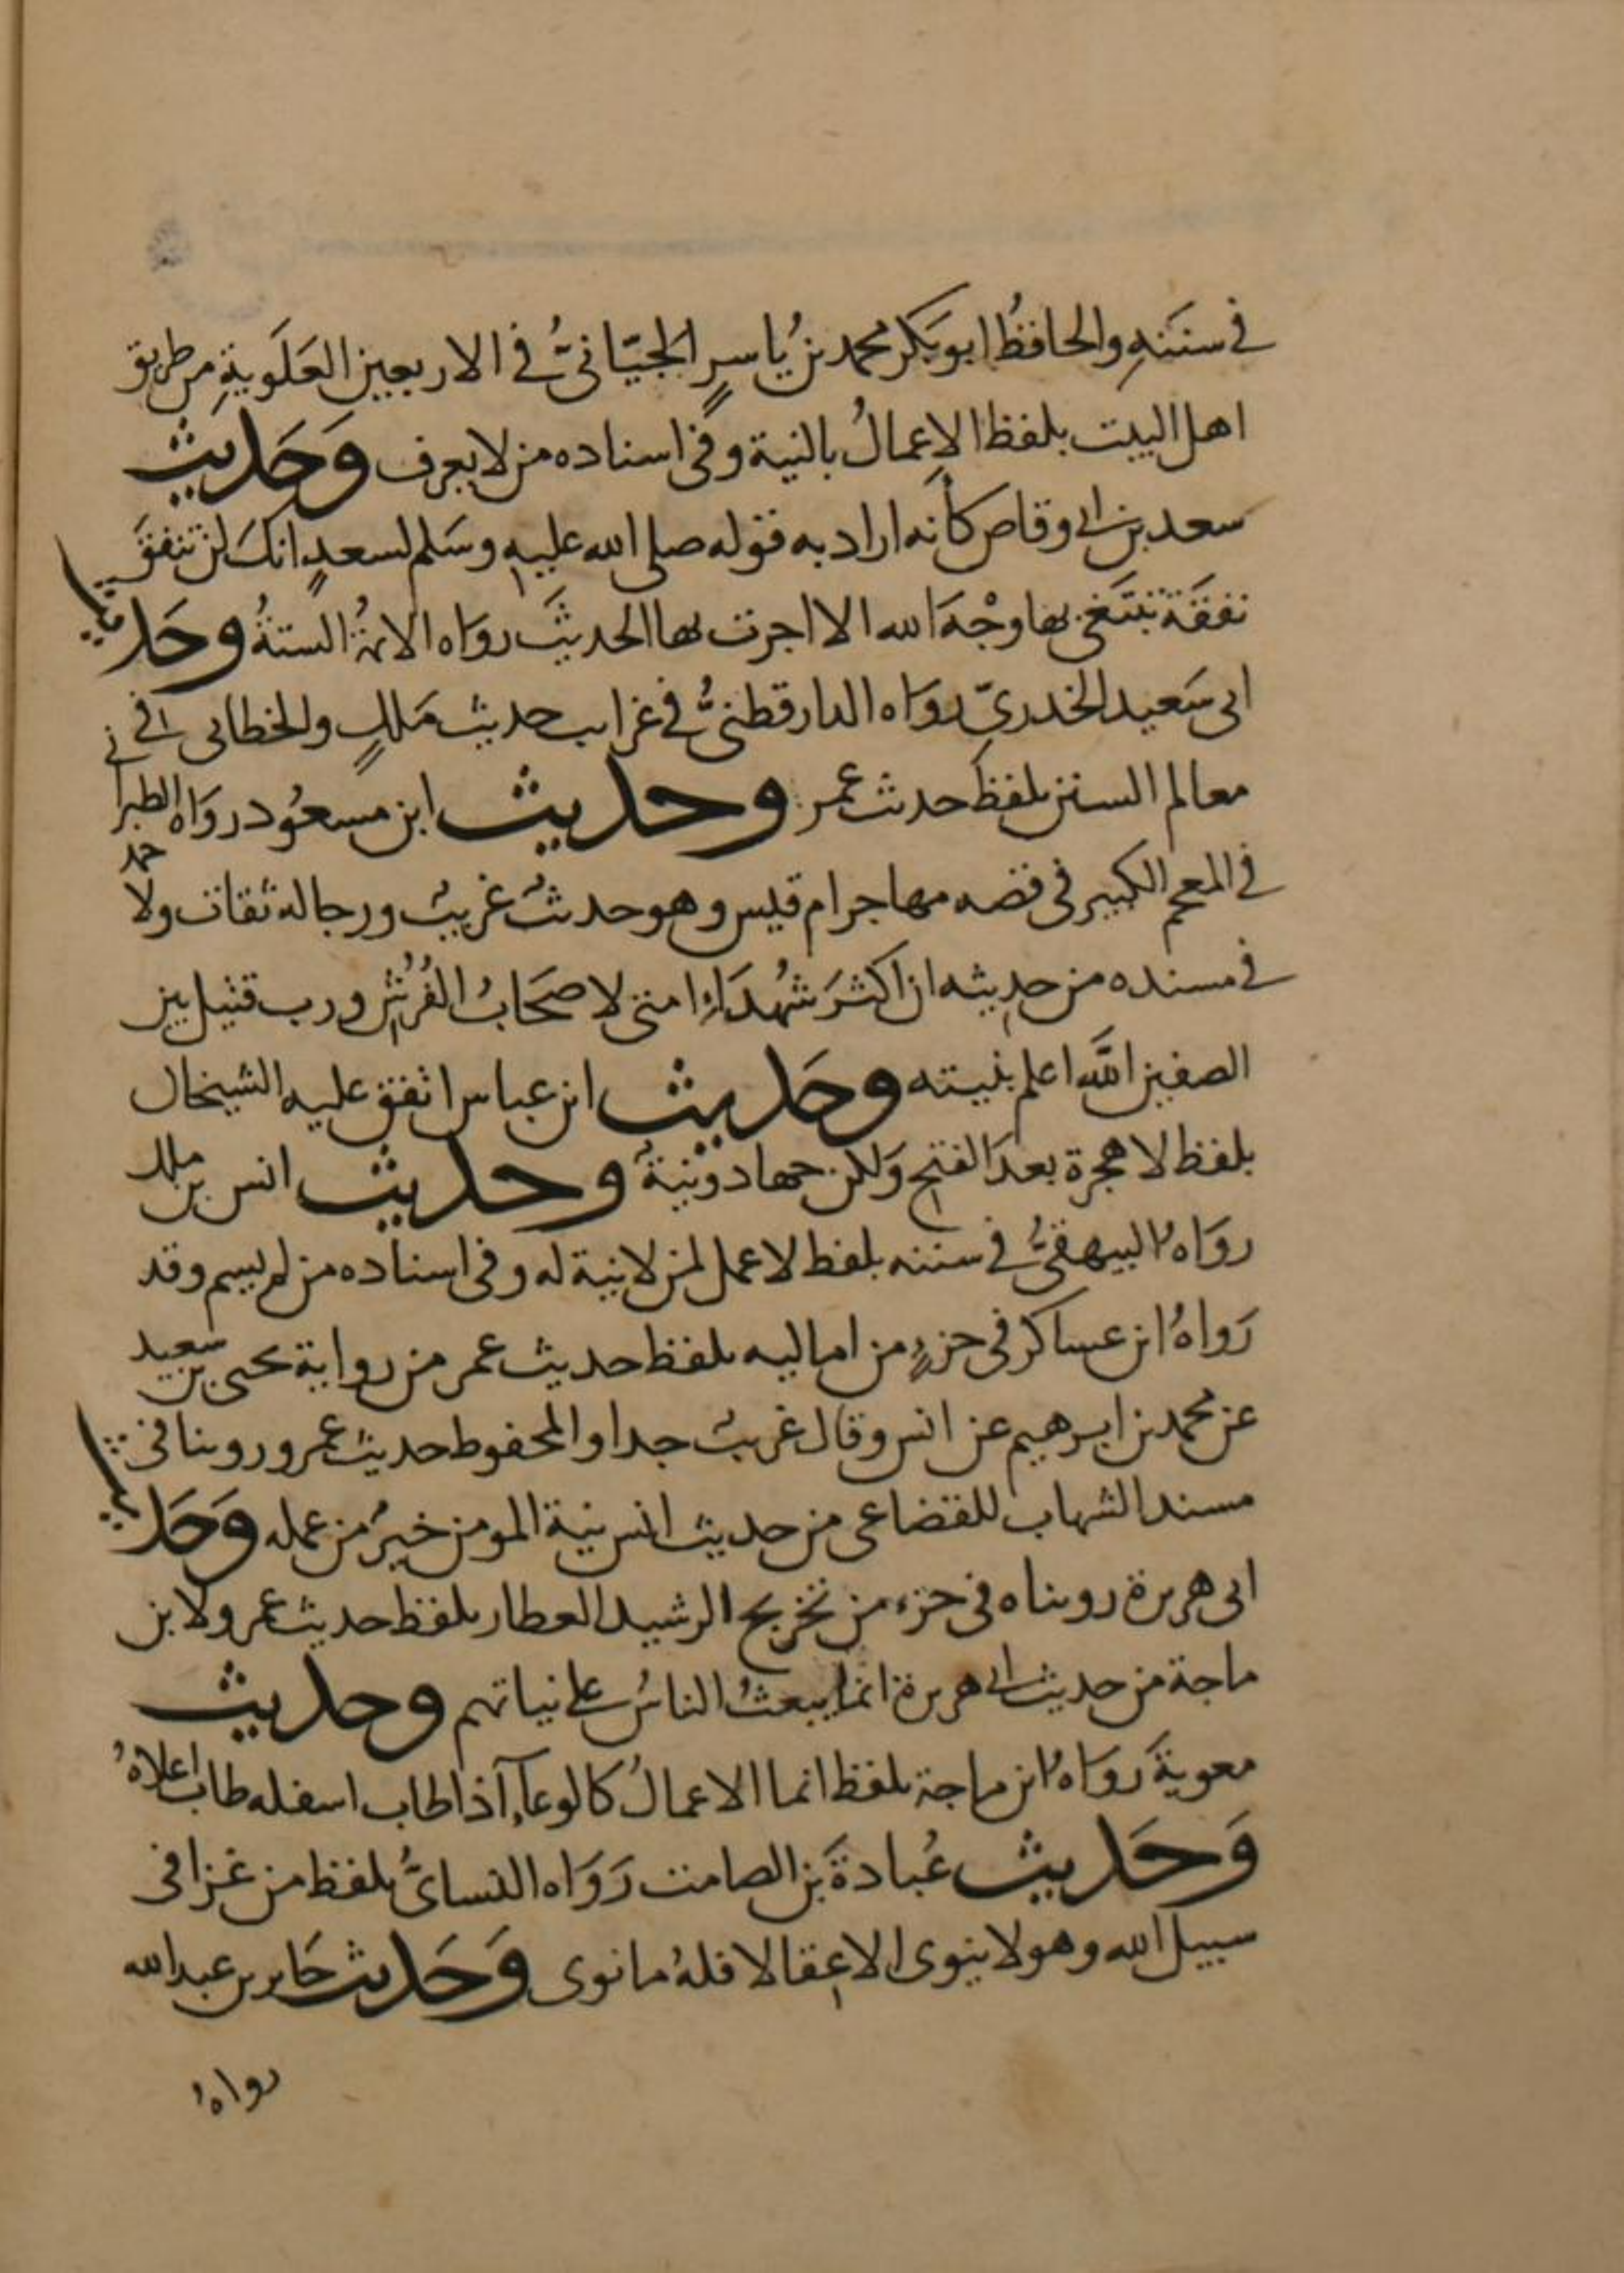 في سننه والحافظُ ابو بكر محمد بنُ ياسرٍ الجيّانيُّ في الاربعين العَلَوية من طريق
اهل البيت بلفظ الاعمالُ بالنية وفي اسناده من لا يعرف وَحَديث
سعد بن ابي وقاص كأنه اراد به قوله صلى الله عليه وسَلم لسعدٍ انكَ لن تنفقَ
نفقَةً تبتَغي بها وجْهَ الله الا اجرت بها الحديثَ روَاه الائمةُ الستةُ وحَديث
ابي سَعيد الخدريّ روَاه الدارقطنيُّ في غرايب حديث مَلكٍ والخطابي في
معالم السنن بلفظ حديث عمر وحديث ابن مسعُود روَاه الطبراني
في المعجم الكبير في قصه مهاجر ام قيس وهو حديث غريبٌ ورجاله ثقات ولاحمد
في مسنده من حديثه ان اكثرَ شهُدَاءِ امتى لاصحَابُ الفُرُشِ ورب قتيل بين
الصفين اللَّه اعلم بنيته وحَديث ابن عباس اتفق عليه الشيخان
بلفظ لا هجرة بعدَ الفتح وَلكن جهاد ونيةٌ وحديث انس بن ملك
روَاهُ البيهقيُّ في سننه بلفظ لا عمل لمن لا نية له وفي اسناده من لم يسم وقد
رَواهُ ابن عساكر في جزءٍ من اماليه بلفظ حديث عمر من رواية يحيى بن سعيد
عن محمد بن ابرهيم عن انس وقال غريبٌ جدا والمحفوظ حديث عمر وروينا في
مسند الشهاب للقضاعى من حديث انس نية المومن خيرٌ من عمله وَحَديث
ابي هريرة رويناه في جزء من تخريج الرشيد العطار بلفظ حديث عمر ولابن
ماجة من حديث ابي هريرة انما يبعثُ الناسُ على نياتهم وحديث
معوية رَوَاهُ ابن ماجة بلفظ انما الاعمالُ كالوعآءِ اذا طاب اسفله طاب اعلاهُ
وَحَديث عُبادةَ بن الصامت رَوَاه النسائُّ بلفظ من غزا في
سبيل الله وهو لا ينوى الا عقالا فلهُ ما نوى وَحَديث جَابر بن عبد الله
رواهُ